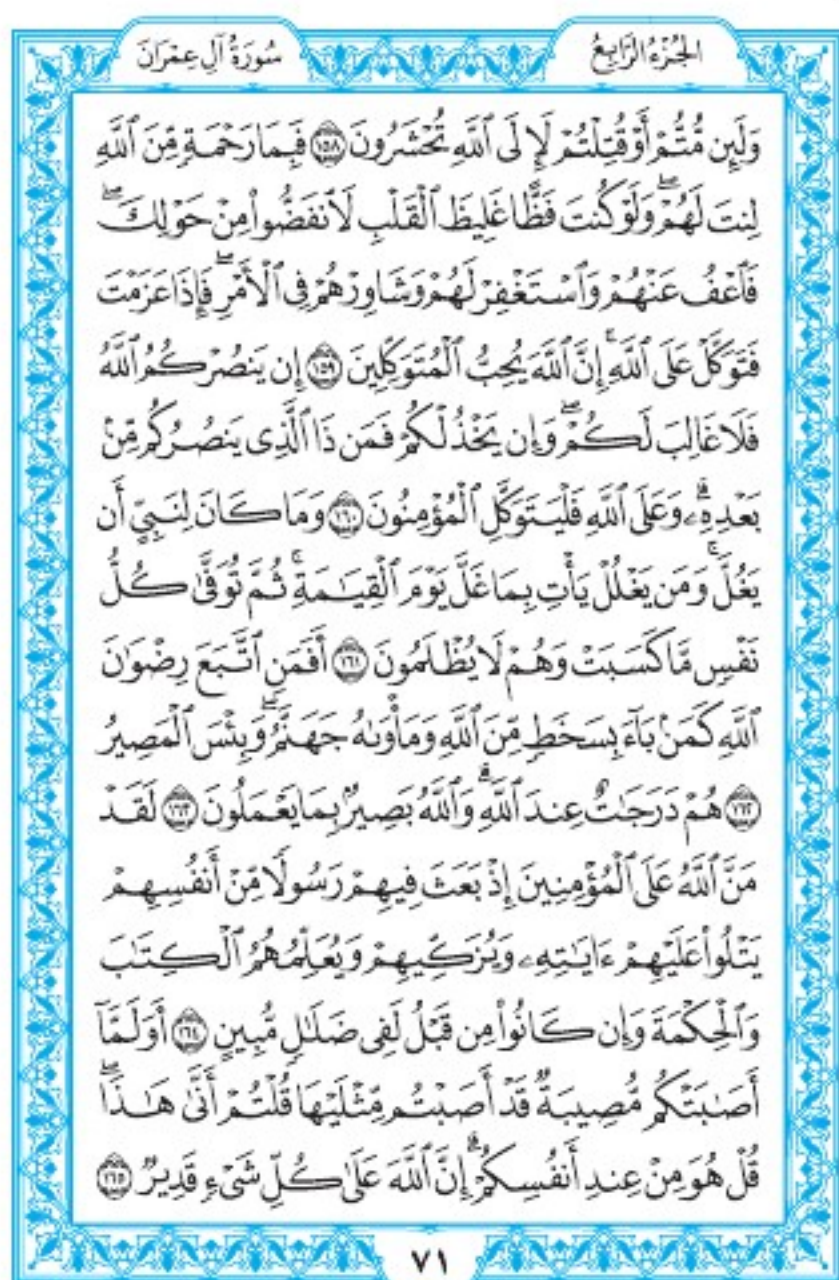 الجُزْءُ الرَّابِعُ
سُورَةُ آلِ عِمْرَانَ
وَلَئِن مُّتُّمْ أَوْ قُتِلْتُمْ لَإِلَى ٱللَّهِ تُحْشَرُونَ ١٥٨ فَبِمَا رَحْمَةٍ مِّنَ ٱللَّهِ
لِنتَ لَهُمْۖ وَلَوْ كُنتَ فَظًّا غَلِيظَ ٱلْقَلْبِ لَٱنفَضُّوا۟ مِنْ حَوْلِكَۖ
فَٱعْفُ عَنْهُمْ وَٱسْتَغْفِرْ لَهُمْ وَشَاوِرْهُمْ فِى ٱلْأَمْرِۖ فَإِذَا عَزَمْتَ
فَتَوَكَّلْ عَلَى ٱللَّهِۚ إِنَّ ٱللَّهَ يُحِبُّ ٱلْمُتَوَكِّلِينَ ١٥٩ إِن يَنصُرْكُمُ ٱللَّهُ
فَلَا غَالِبَ لَكُمْۖ وَإِن يَخْذُلْكُمْ فَمَن ذَا ٱلَّذِى يَنصُرُكُم مِّنۢ
بَعْدِهِۦۗ وَعَلَى ٱللَّهِ فَلْيَتَوَكَّلِ ٱلْمُؤْمِنُونَ ١٦٠ وَمَا كَانَ لِنَبِىٍّ أَن
يَغُلَّۚ وَمَن يَغْلُلْ يَأْتِ بِمَا غَلَّ يَوْمَ ٱلْقِيَـٰمَةِۚ ثُمَّ تُوَفَّىٰ كُلُّ
نَفْسٍ مَّا كَسَبَتْ وَهُمْ لَا يُظْلَمُونَ ١٦١ أَفَمَنِ ٱتَّبَعَ رِضْوَٰنَ
ٱللَّهِ كَمَنۢ بَآءَ بِسَخَطٍ مِّنَ ٱللَّهِ وَمَأْوَىٰهُ جَهَنَّمُۖ وَبِئْسَ ٱلْمَصِيرُ
١٦٢ هُمْ دَرَجَـٰتٌ عِندَ ٱللَّهِۗ وَٱللَّهُ بَصِيرٌۢ بِمَا يَعْمَلُونَ ١٦٣ لَقَدْ
مَنَّ ٱللَّهُ عَلَى ٱلْمُؤْمِنِينَ إِذْ بَعَثَ فِيهِمْ رَسُولًا مِّنْ أَنفُسِهِمْ
يَتْلُوا۟ عَلَيْهِمْ ءَايَـٰتِهِۦ وَيُزَكِّيهِمْ وَيُعَلِّمُهُمُ ٱلْكِتَـٰبَ
وَٱلْحِكْمَةَ وَإِن كَانُوا۟ مِن قَبْلُ لَفِى ضَلَـٰلٍ مُّبِينٍ ١٦٤ أَوَلَمَّآ
أَصَـٰبَتْكُم مُّصِيبَةٌ قَدْ أَصَبْتُم مِّثْلَيْهَا قُلْتُمْ أَنَّىٰ هَـٰذَاۖ
قُلْ هُوَ مِنْ عِندِ أَنفُسِكُمْۗ إِنَّ ٱللَّهَ عَلَىٰ كُلِّ شَىْءٍ قَدِيرٌ ١٦٥
٧١